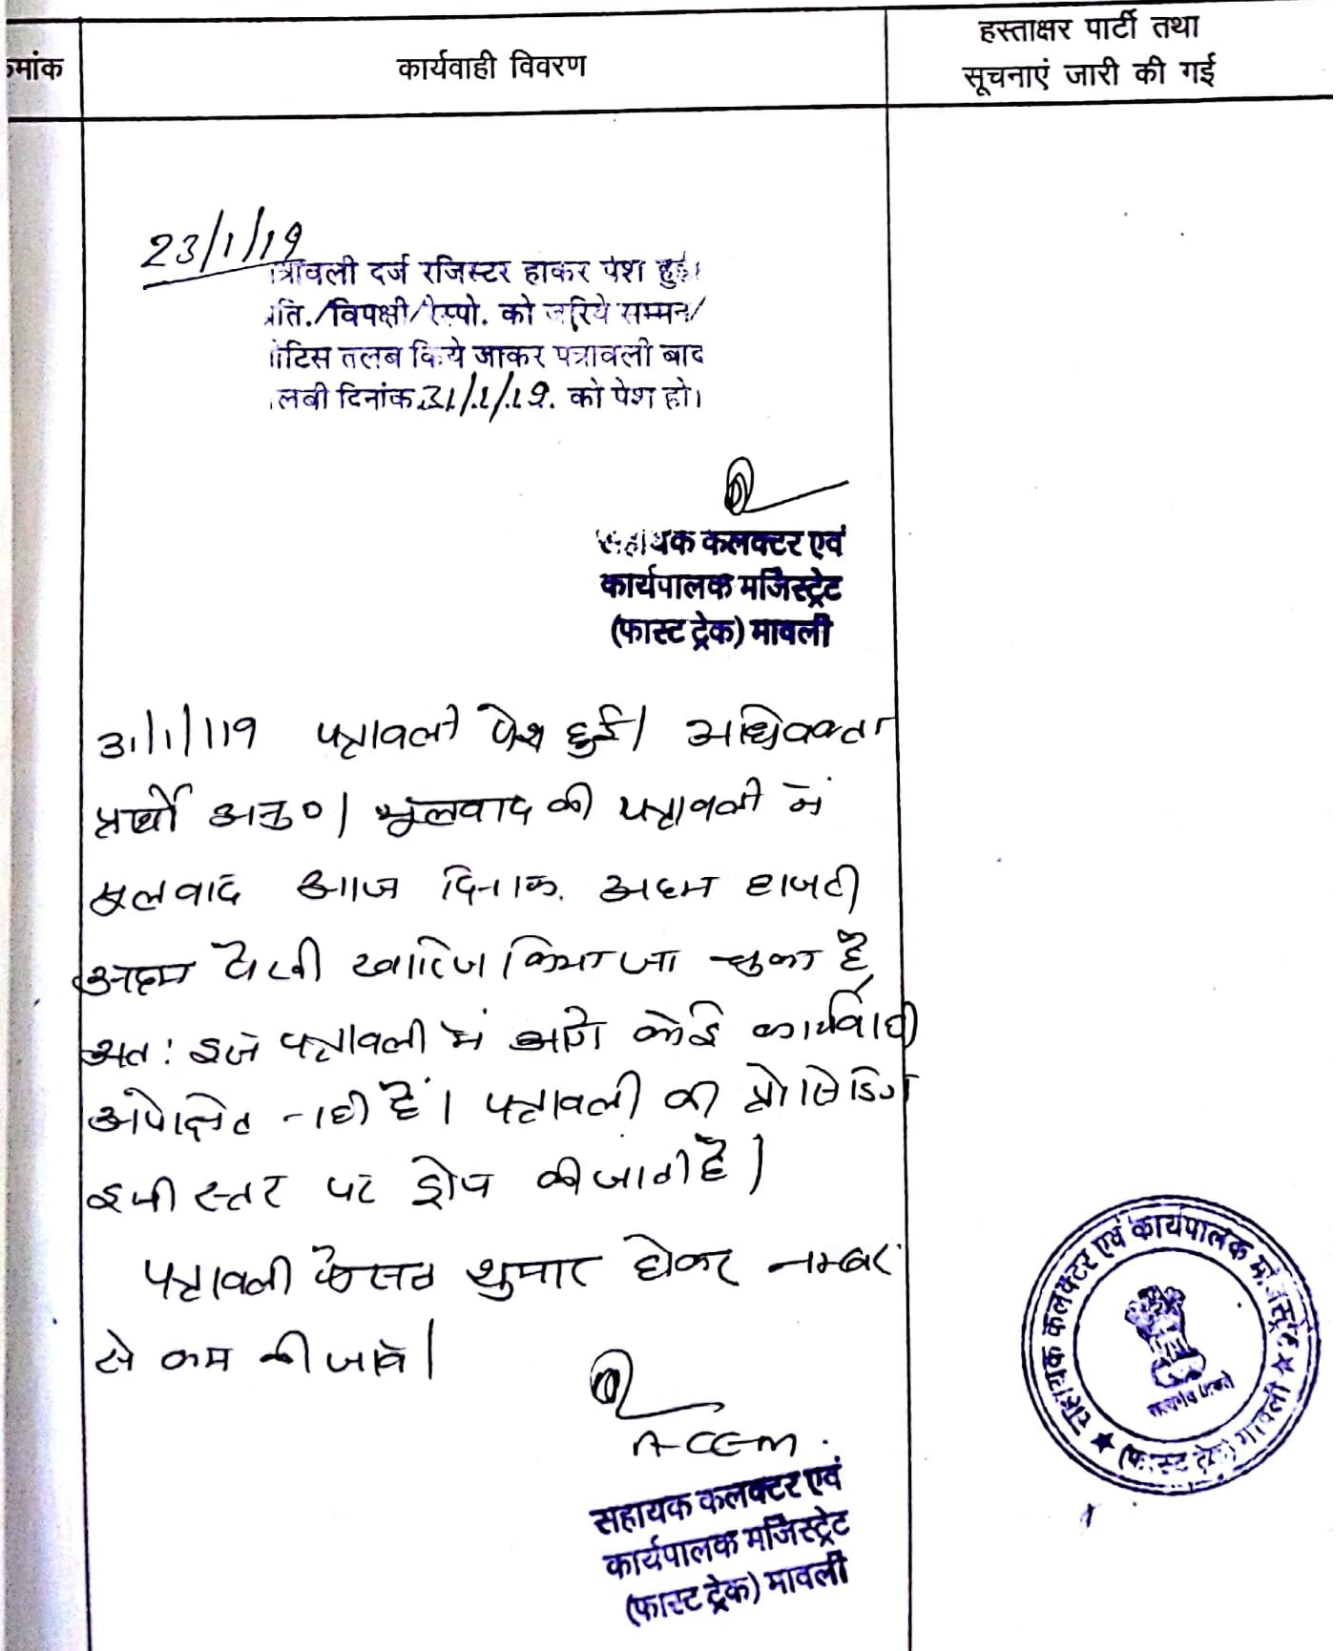 क्रमांक
कार्यवाही विवरण
हस्ताक्षर पार्टी तथा
सूचनाएं जारी की गई
23/1/19
त्रावली दर्ज रजिस्टर होकर पेश हुई।
प्रति./विपक्षी/रेस्पो. को जरिये सम्मन/
नोटिस तलब किये जाकर पत्रावली बाद
तलबी दिनांक 31/1/19. को पेश हो।
सहायक कलक्टर एवं
कार्यपालक मजिस्ट्रेट
(फास्ट ट्रेक) मावली
31/1/19 पत्रावली पेश हुई। अधिवक्ता
प्रार्थी अनु०। मूलवाद की पत्रावली में
मूलवाद आज दिनांक अदम हाजरी
अदम पैरवी खारिज किया जा चुका है
अत: इस पत्रावली में आगे कोई कार्यवाही
अपेक्षित नही है। पत्रावली की प्रोसिडिंग
इसी स्तर पर ड्रोप की जाती है।
पत्रावली फैसल शुमार होकर नम्बर
से कम की जावे।
ACEM.
सहायक कलक्टर एवं
कार्यपालक मजिस्ट्रेट
(फास्ट ट्रेक) मावली
सहायक कलक्टर एवं कार्यपालक मजिस्ट्रेट
(फास्ट ट्रेक) मावली
सत्यमेव जयते